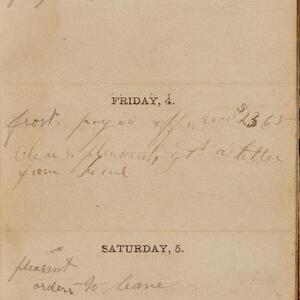 FRIDAY, 4.
frost. payed off, recd $23 65
clear & pleasant, got a letter
from home
SATURDAY, 5.
pleasant
orders to leave